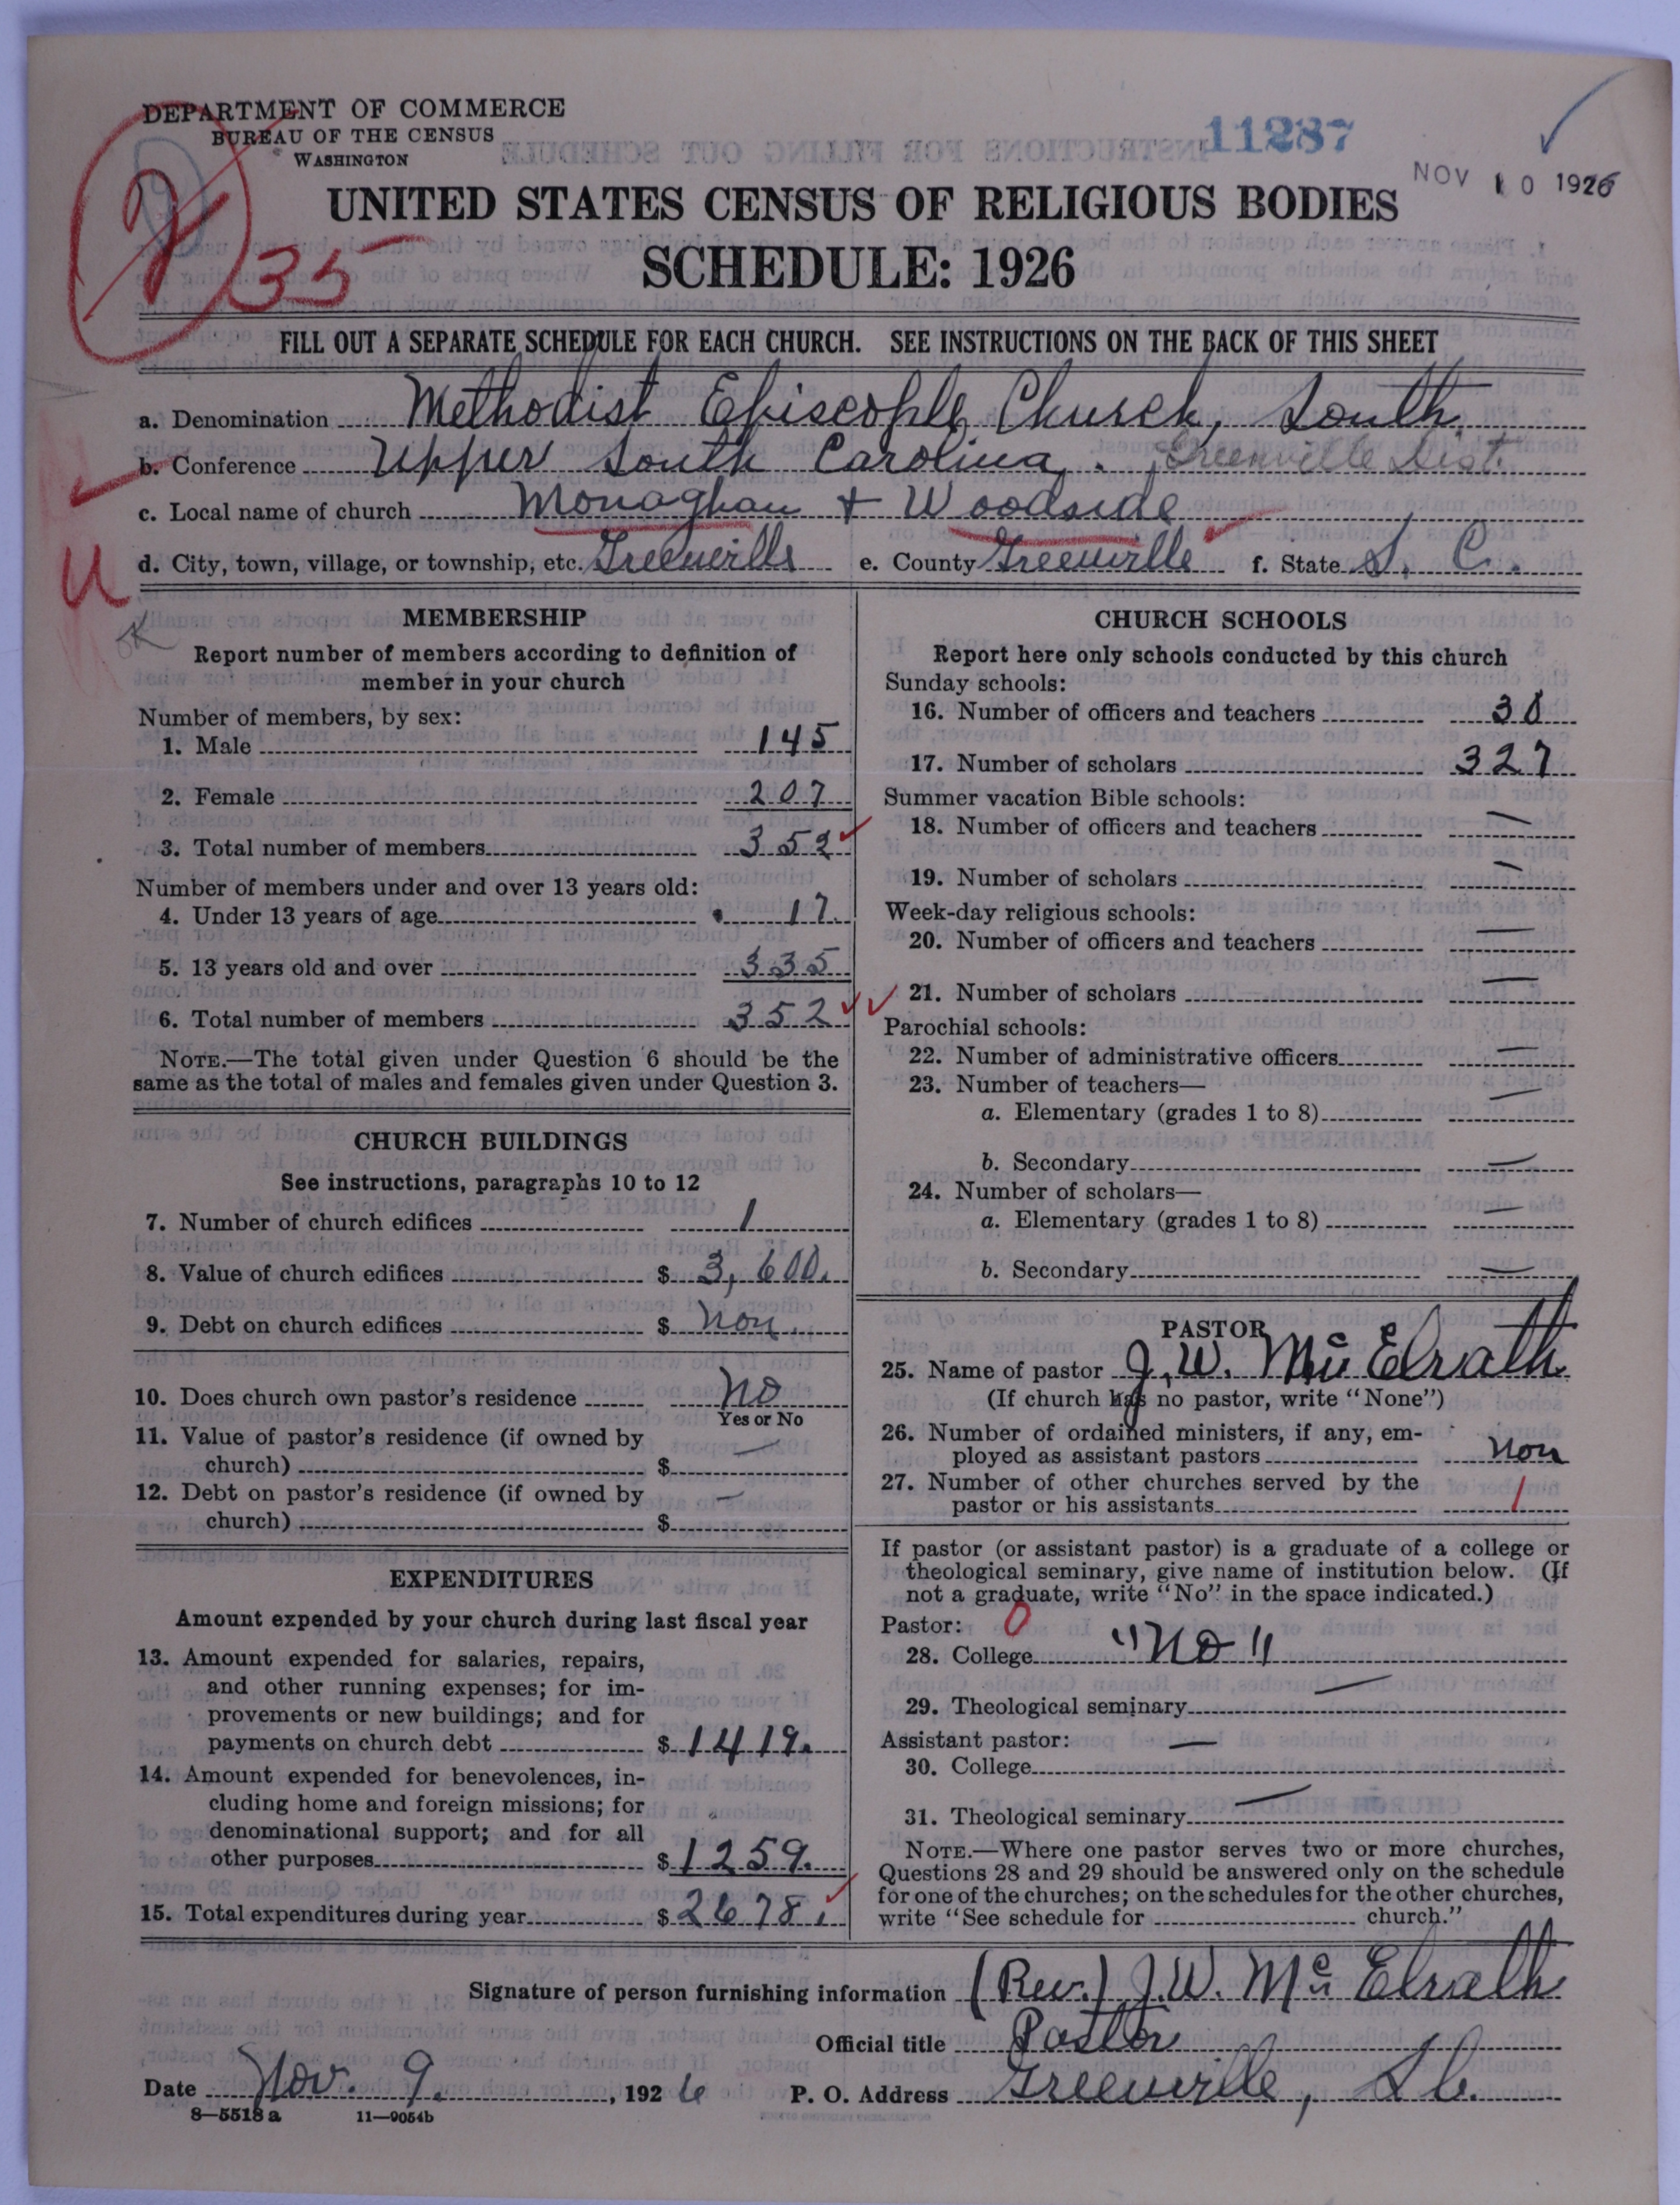 DEPARTMENT OF COMMERCE
BUREAU OF THE CENSUS
WASHINGTON
11287
NOV 10 1926
35
UNITED STATES CENSUS OF RELIGIOUS BODIES
SCHEDULE: 1926
FILL OUT A SEPARATE SCHEDULE FOR EACH CHURCH. SEE INSTRUCTIONS ON THE BACK OF THIS SHEET
a. Denomination Methodist Episcople Church, South.
b. Conference Upper South Carolina, Greenville Dist.
c. Local name of church Monaghan + Woodside
d. City, town, village, or township, etc. Greenville e. County Greenville f. State S. C.
U
OK
MEMBERSHIP
Report number of members according to definition of
member in your church
Number of members, by sex:
1. Male 145
2. Female 207
3. Total number of members 352
Number of members under and over 13 years old:
4. Under 13 years of age 17.
5. 13 years old and over 335
6. Total number of members 352
NOTE.—The total given under Question 6 should be the
same as the total of males and females given under Question 3.
CHURCH BUILDINGS
See instructions, paragraphs 10 to 12
7. Number of church edifices 1
8. Value of church edifices $ 3,600.
9. Debt on church edifices $ Non
10. Does church own pastor's residence No
Yes or No
11. Value of pastor's residence (if owned by
church) $ —
12. Debt on pastor's residence (if owned by
church) $ —
EXPENDITURES
Amount expended by your church during last fiscal year
13. Amount expended for salaries, repairs,
and other running expenses; for im-
provements or new buildings; and for
payments on church debt $ 1419.
14. Amount expended for benevolences, in-
cluding home and foreign missions; for
denominational support; and for all
other purposes $ 1259.
15. Total expenditures during year $ 2678.
CHURCH SCHOOLS
Report here only schools conducted by this church
Sunday schools:
16. Number of officers and teachers 30
17. Number of scholars 327
Summer vacation Bible schools:
18. Number of officers and teachers —
19. Number of scholars —
Week-day religious schools:
20. Number of officers and teachers —
21. Number of scholars —
Parochial schools:
22. Number of administrative officers —
23. Number of teachers—
a. Elementary (grades 1 to 8) —
b. Secondary —
24. Number of scholars—
a. Elementary (grades 1 to 8) —
b. Secondary —
PASTOR
25. Name of pastor J. W. McElrath
(If church has no pastor, write "None")
26. Number of ordained ministers, if any, em-
ployed as assistant pastors Non
27. Number of other churches served by the
pastor or his assistants 1
If pastor (or assistant pastor) is a graduate of a college or
theological seminary, give name of institution below. (If
not a graduate, write "No" in the space indicated.)
Pastor: 0
28. College "No"
29. Theological seminary —
Assistant pastor:
30. College —
31. Theological seminary —
NOTE.—Where one pastor serves two or more churches,
Questions 28 and 29 should be answered only on the schedule
for one of the churches; on the schedules for the other churches,
write "See schedule for church."
Signature of person furnishing information (Rev.) J. W. McElrath
Official title Pastor
Date Nov. 9., 1926 P. O. Address Greenville, S.C.
8—5518 a 11—9054b